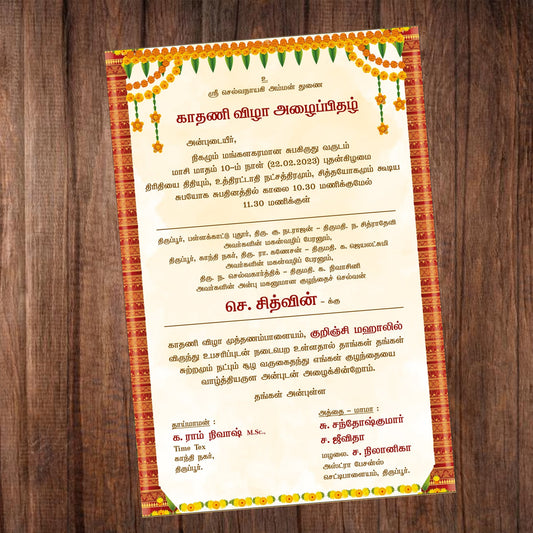 உ
ஸ்ரீ செல்வநாயகி அம்மன் துணை
காதணி விழா அழைப்பிதழ்
அன்புடையீர்,
நிகழும் மங்களகரமான சுபகிருது வருடம்
மாசி மாதம் 10-ம் நாள் (22.02.2023) புதன்கிழமை
திரிதியை திதியும், உத்திரட்டாதி நட்சத்திரமும், சித்தயோகமும் கூடிய
சுபயோக சுபதினத்தில் காலை 10.30 மணிக்குமேல்
11.30 மணிக்குள்
திருப்பூர், பள்ளக்காட்டு புதூர், திரு. கு. நடராஜன் - திருமதி. ந. சித்ராதேவி
அவர்களின் மகன்வழிப் பேரனும்,
திருப்பூர், காந்தி நகர், திரு. ரா. கணேசன் - திருமதி. க. ஜெயலட்சுமி
அவர்களின் மகள்வழிப் பேரனும்,
திரு. ந. செல்வகார்த்திக் - திருமதி. க. நிவாசினி
அவர்களின் அன்பு மகனுமான குழந்தைச் செல்வன்
செ. சித்வின் - க்கு
காதணி விழா முத்தணம்பாளையம், குறிஞ்சி மஹாலில்
விருந்து உபசரிப்புடன் நடைபெற உள்ளதால் தாங்கள் தங்கள்
சுற்றமும் நட்பும் சூழ வருகைதந்து எங்கள் குழந்தையை
வாழ்த்தியருள அன்புடன் அழைக்கின்றோம்.
தங்கள் அன்புள்ள
தாய்மாமன் :
க. ராம் நிவாஷ் M.Sc.,
Time Tex
காந்தி நகர்,
திருப்பூர்.
அத்தை - மாமா :
சு. சந்தோஷ்குமார்
ச. ஜீவிதா
மழலை. ச. நிலானிகா
அல்ட்ரா பேசன்ஸ்
செட்டிபாளையம், திருப்பூர்.